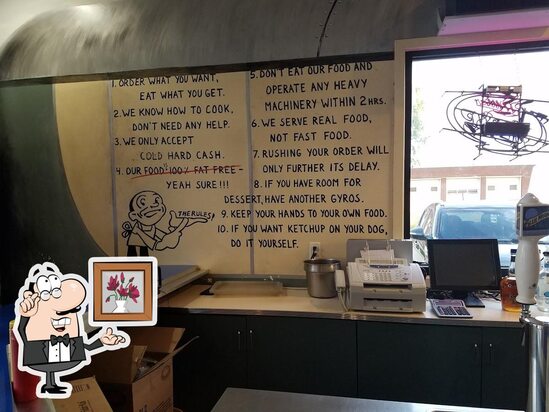 1. ORDER WHAT YOU WANT,
EAT WHAT YOU GET.
2. WE KNOW HOW TO COOK,
DON'T NEED ANY HELP.
3. WE ONLY ACCEPT
COLD HARD CASH.
4. OUR FOOD'S 100% FAT FREE-
YEAH SURE!!!
THE RULES
5. DON'T EAT OUR FOOD AND
OPERATE ANY HEAVY
MACHINERY WITHIN 2 HRS.
6. WE SERVE REAL FOOD,
NOT FAST FOOD.
7. RUSHING YOUR ORDER WILL
ONLY FURTHER ITS DELAY.
8. IF YOU HAVE ROOM FOR
DESSERT, HAVE ANOTHER GYROS.
9. KEEP YOUR HANDS TO YOUR OWN FOOD.
10. IF YOU WANT KETCHUP ON YOUR DOG,
DO IT YOURSELF.